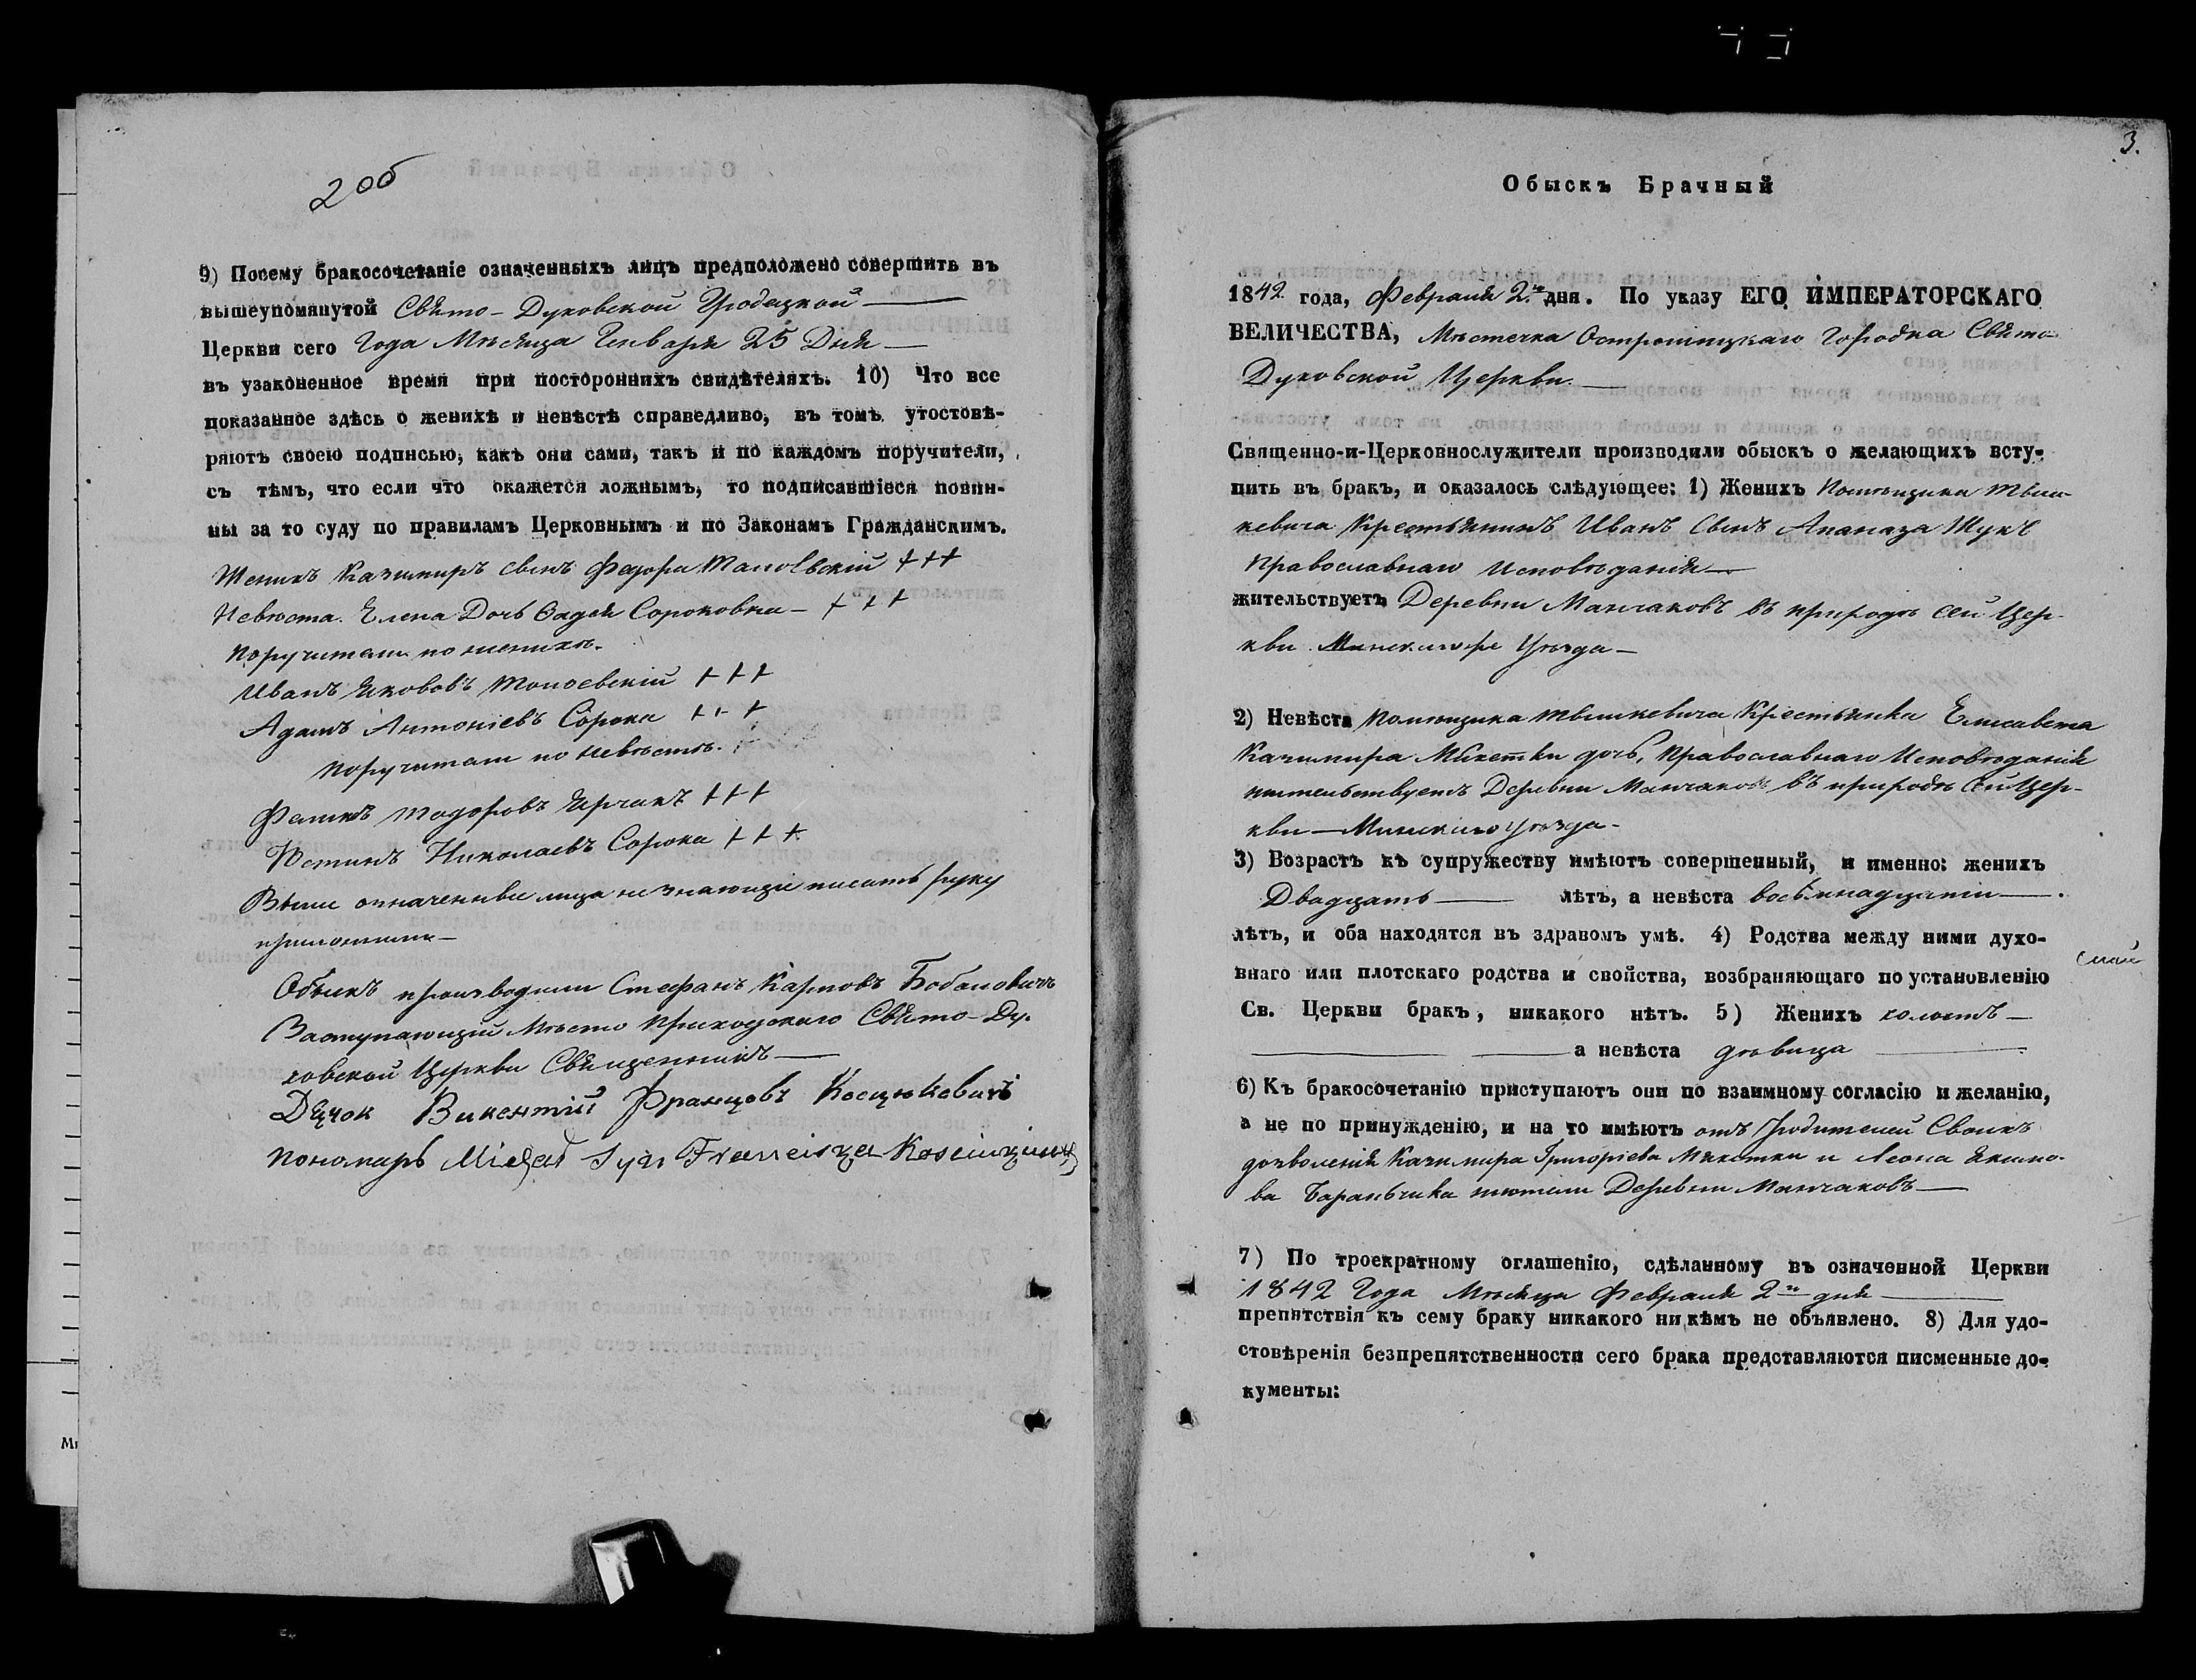 2 об
9) Посему бракосочетаніе означенныхъ лицъ предположено совершить въ
вышеупомянутой Свято-Духовской Городецкой
Церкви сего Года Мѣсяца Генваря 25 Дня
въ узаконенное время при постороннихъ свидѣтеляхъ. 10) Что все
показанное здѣсь о женихѣ и невѣстѣ справедливо, въ томъ утостовѣ-
ряютъ своею подписью, какъ они сами, такъ и по каждомъ поручители,
съ тѣмъ, что если что окажется ложнымъ, то подписавшіеся повин-
ны за то суду по правиламъ Церковнымъ и по Законамъ Гражданскимъ.
Женихъ Казимиръ сынъ Федора +++
Невѣста Елена Дочь Фадея Сороковна - +++
Поручители по женихѣ.
Иванъ Якововъ +++
Адамъ Антоніевъ Сорока +++
Поручители по невѣстѣ.
Тодоровъ +++
Николаевъ Сорока +++
Выше означенные лица не знающіе писать руку
приложили
Обыскъ производили Стефанъ Карповъ Бобановичъ
Заступающій Мѣсто Приходскаго Свято-Ду-
ховской Церкви Священникъ
Дячок Викентий Францовъ Косцюкевичъ
Пономарь Michał Syn Franciszka
3.
Обыскъ Брачный
1842 года, Февраля 2го дня. По указу ЕГО ИМПЕРАТОРСКАГО
ВЕЛИЧЕСТВА, Мѣстечка Острошицкаго Городка Свято-
Духовской Церкви.
Священно-и-Церковнослужители производили обыскъ о желающихъ всту-
пить въ бракъ, и оказалось слѣдующее: 1) Женихъ Помѣщика Тыш-
кевича Крестьянинъ Иванъ Сынъ Апаназа Жукъ
Православнаго Исповѣданія
жительствуетъ Деревни Манчаковъ въ приходѣ сей Цер-
кви Минскаго Уѣзда
2) Невѣста Помѣщика Тышкевича Крестьянка Елисавета
Казимира Микетки дочь, Православнаго Исповѣданія
жительствуетъ Деревни Манчаковъ въ приходѣ сей Цер-
кви - Минскаго уѣзда -
3) Возрастъ къ супружеству имѣютъ совершенный, и именно: женихъ
Двадцать лѣтъ, а невѣста восьмнадцати
лѣтъ, и оба находятся въ здравомъ умѣ. 4) Родства между ними духо-
внаго или плотскаго родства и свойства, возбраняющаго по установленію
Св. Церкви бракъ, никакого нѣтъ. 5) Женихъ холостъ
а невѣста дѣвица
6) Къ бракосочетанію приступаютъ они по взаимному согласію и желанію,
а не по принужденію, и на то имѣютъ отъ Родителей Своихъ
дозволенія Казимира Григоріева Микетки и Леона Якимо-
ва Баранчика жители Деревни Манчаковъ
7) По троекратному оглашенію, сдѣланному въ означенной Церкви
1842 Года Мѣсяца Февраля 2го дня
препятствія къ сему браку никакого ни кѣмъ не объявлено. 8) Для удо-
стовѣренія безпрепятственности сего брака представляются писменные до-
кументы: